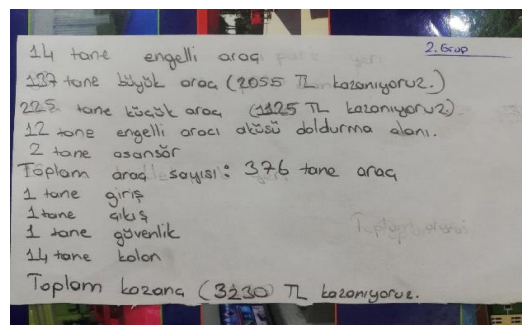 2. Grup
14 tane engelli araçı park yeri
137 tane büyük araç (2055 TL kazanıyoruz.)
225 tane küçük araç (1125 TL kazanıyoruz)
12 tane engelli aracı aküsü doldurma alanı.
2 tane asansör
Toplam araç sayısı: 376 tane araç
1 tane giriş
1 tane çıkış
1 tane güvenlik
14 tane kolon
Toplam kazanç (3230 TL kazanıyoruz.